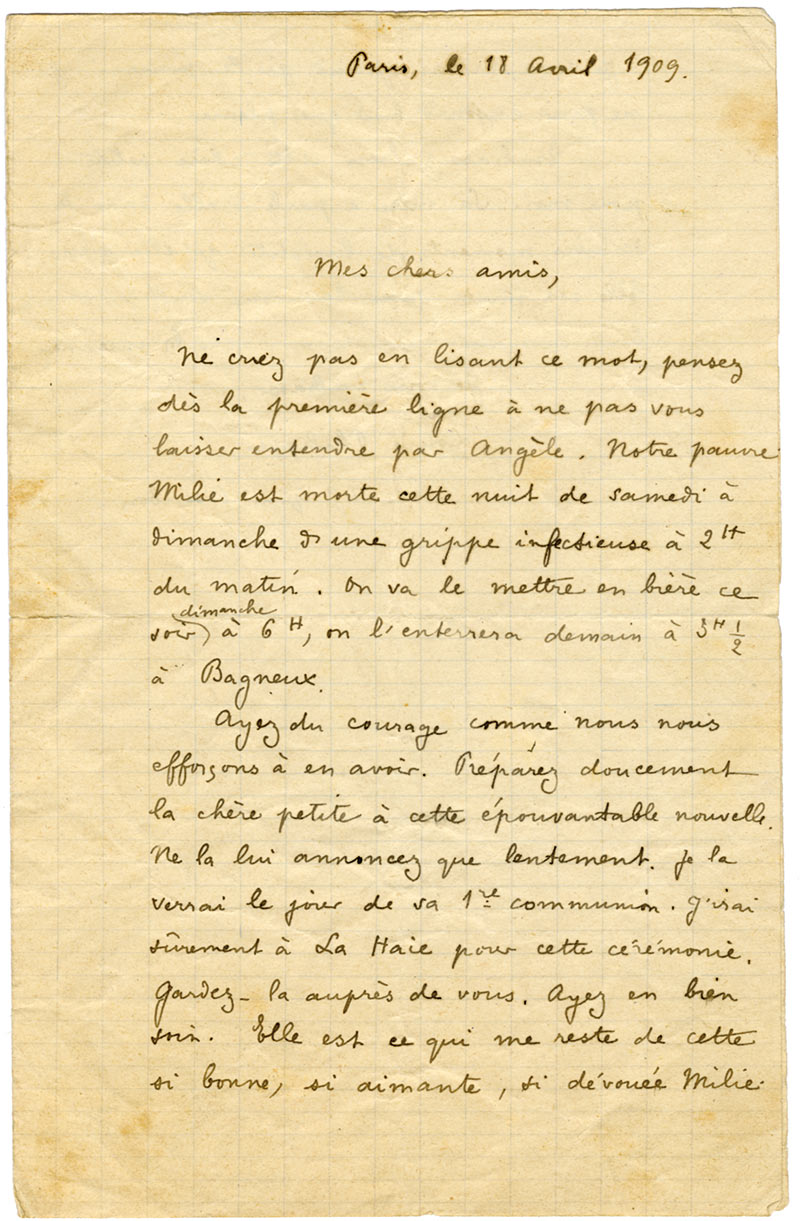 Paris, le 18 Avril 1909.
Mes chers amis,
Ne criez pas en lisant ce mot, pensez
dès la première ligne à ne pas vous
laisser entendre par Angèle. Notre pauvre
Milie est morte cette nuit de samedi à
dimanche d'une grippe infectieuse à 2H
du matin. On va le mettre en bière ce
soir (dimanche) à 6H, on l'enterrera demain à 3H 1/2
à Bagneux.
Ayez du courage comme nous nous
efforçons à en avoir. Préparez doucement
la chère petite à cette épouvantable nouvelle.
Ne la lui annoncez que lentement. Je la
verrai le jour de sa 1re communion. J'irai
sûrement à La Haie pour cette cérémonie.
Gardez-la auprès de vous. Ayez en bien
soin. Elle est ce qui me reste de cette
si bonne, si aimante, si dévouée Milie.